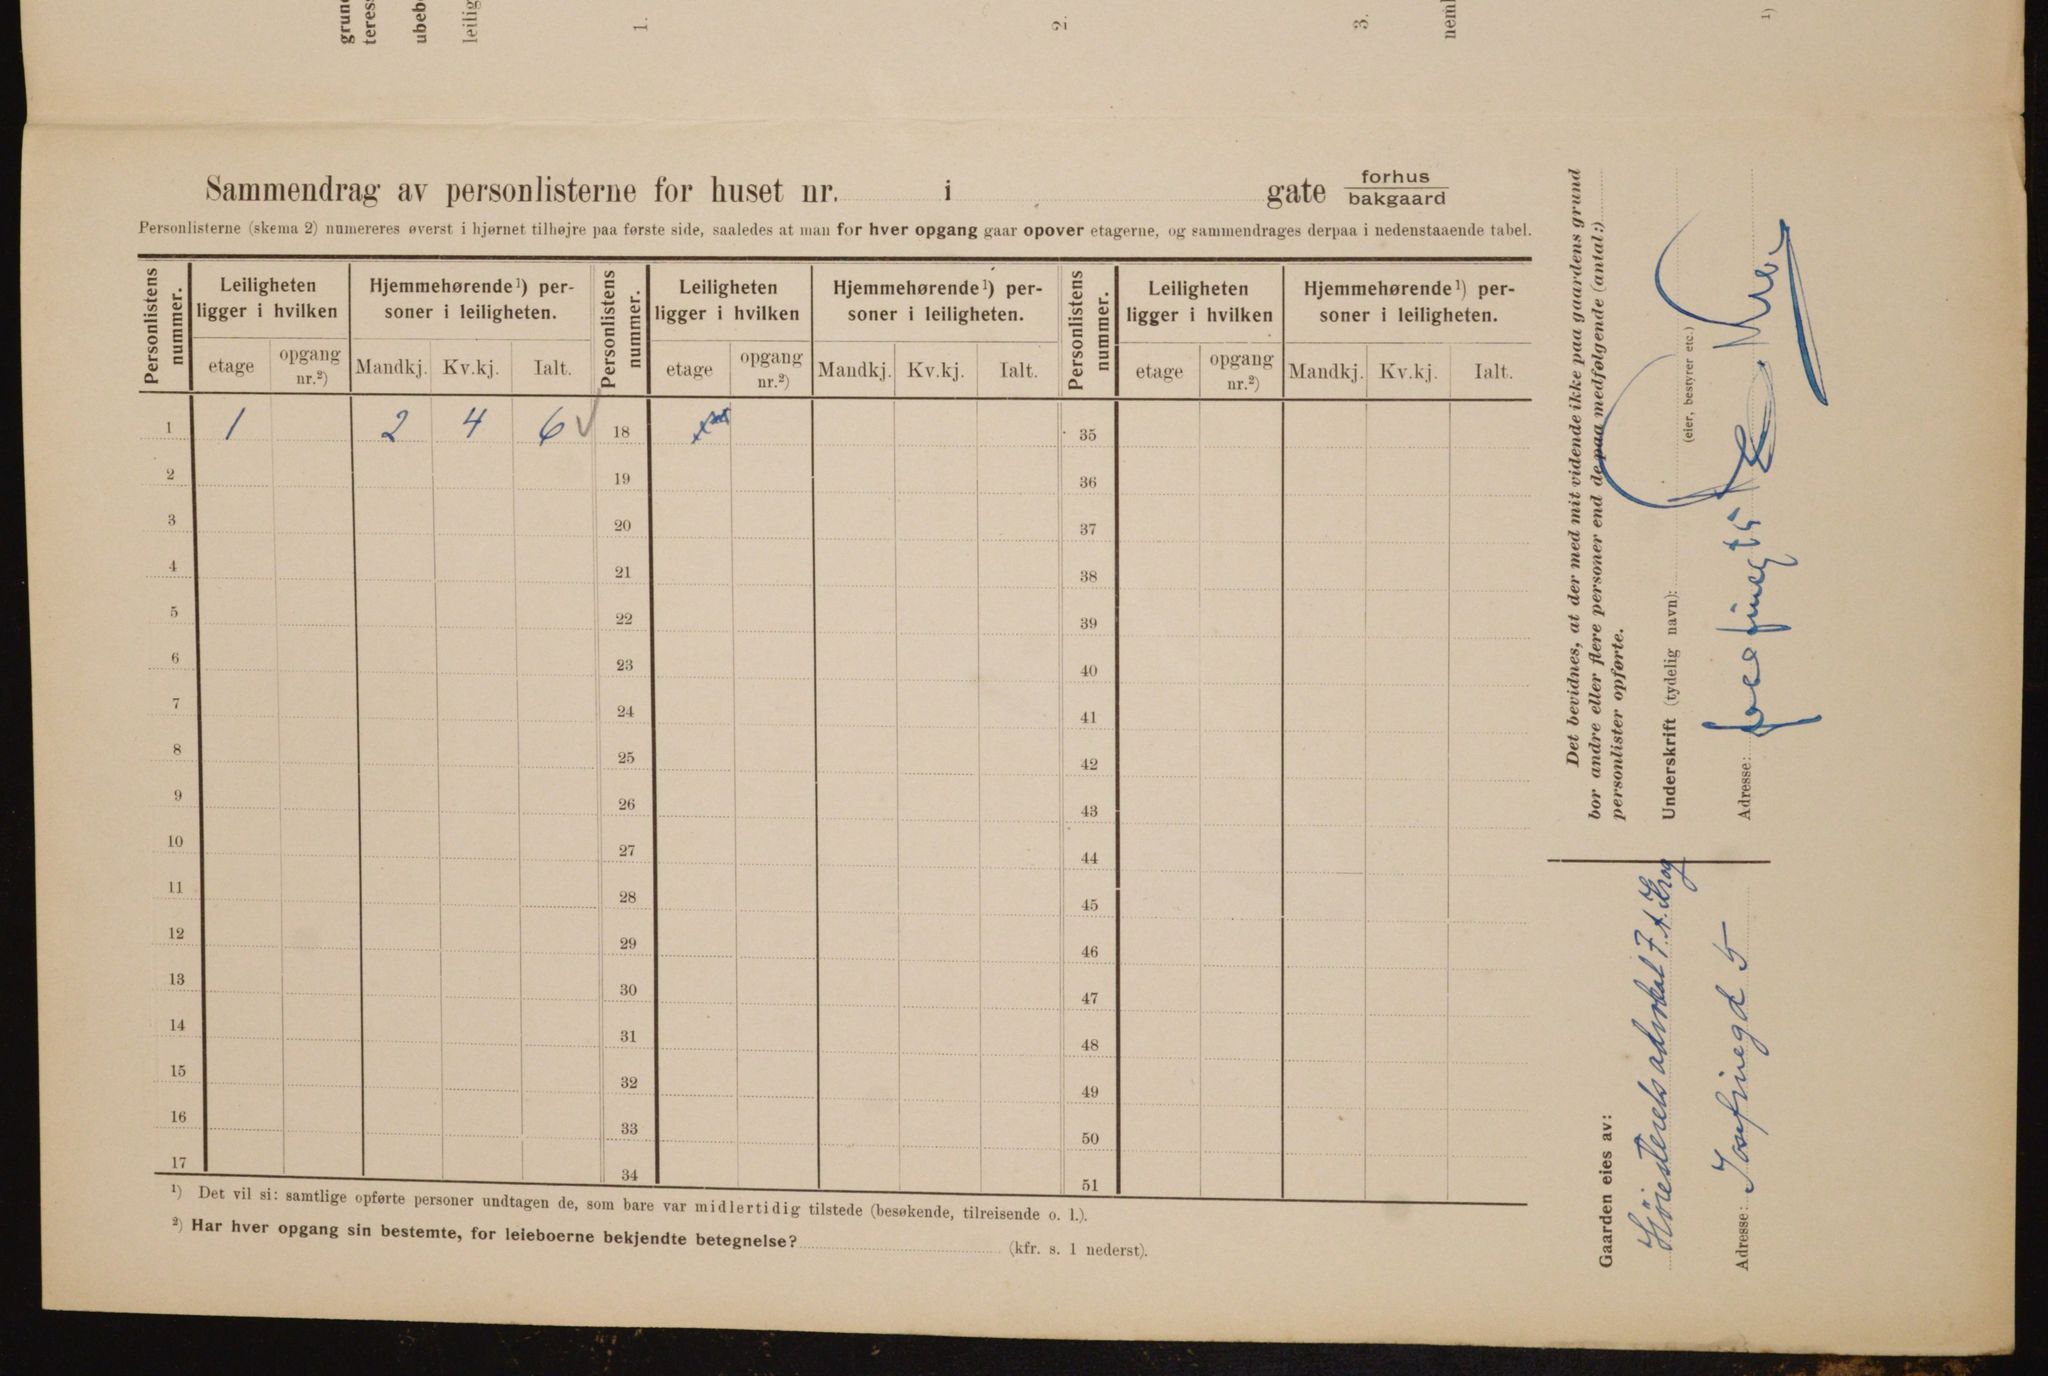 grun
teres
ubeb
leilig
1.
2.
3.
neml
1)
Sammendrag av personlisterne for huset nr. i gate forhus
bakgaard
Personlisterne (skema 2) numereres øverst i hjørnet tilhøjre paa første side, saaledes at man for hver opgang gaar opover etagerne, og sammendrages derpaa i nedenstaaende tabel.
Personlistens nummer. Leiligheten ligger i hvilken Hjemmehørende¹) personer i leiligheten. Personlistens nummer. Leiligheten ligger i hvilken Hjemmehørende¹) personer i leiligheten. Personlistens nummer. Leiligheten ligger i hvilken Hjemmehørende¹) personer i leiligheten.
etage opgang nr.²) Mandkj. Kv.kj. Ialt. etage opgang nr.²) Mandkj. Kv.kj. Ialt. etage opgang nr.²) Mandkj. Kv.kj. Ialt.
1 1 2 4 6 ✓ 18 35
2 19 36
3 20 37
4 21 38
5 22 39
6 23 40
7 24 41
8 25 42
9 26 43
10 27 44
11 28 45
12 29 46
13 30 47
14 31 48
15 32 49
16 33 50
17 34 51
¹) Det vil si: samtlige opførte personer undtagen de, som bare var midlertidig tilstede (besøkende, tilreisende o. l.).
²) Har hver opgang sin bestemte, for leieboerne bekjendte betegnelse? (kfr. s. 1 nederst).
Det bevidnes, at der med mit vidende ikke paa gaardens grund
bor andre eller flere personer end de paa medfølgende (antal:)
personlister opførte.
Underskrift (tydelig navn):
(eier, bestyrer etc.)
Adresse: Josefinegt 5
Gaarden eies av:
Høiesteretsadvokat F. A. Krog
Adresse: Josefinegd 5